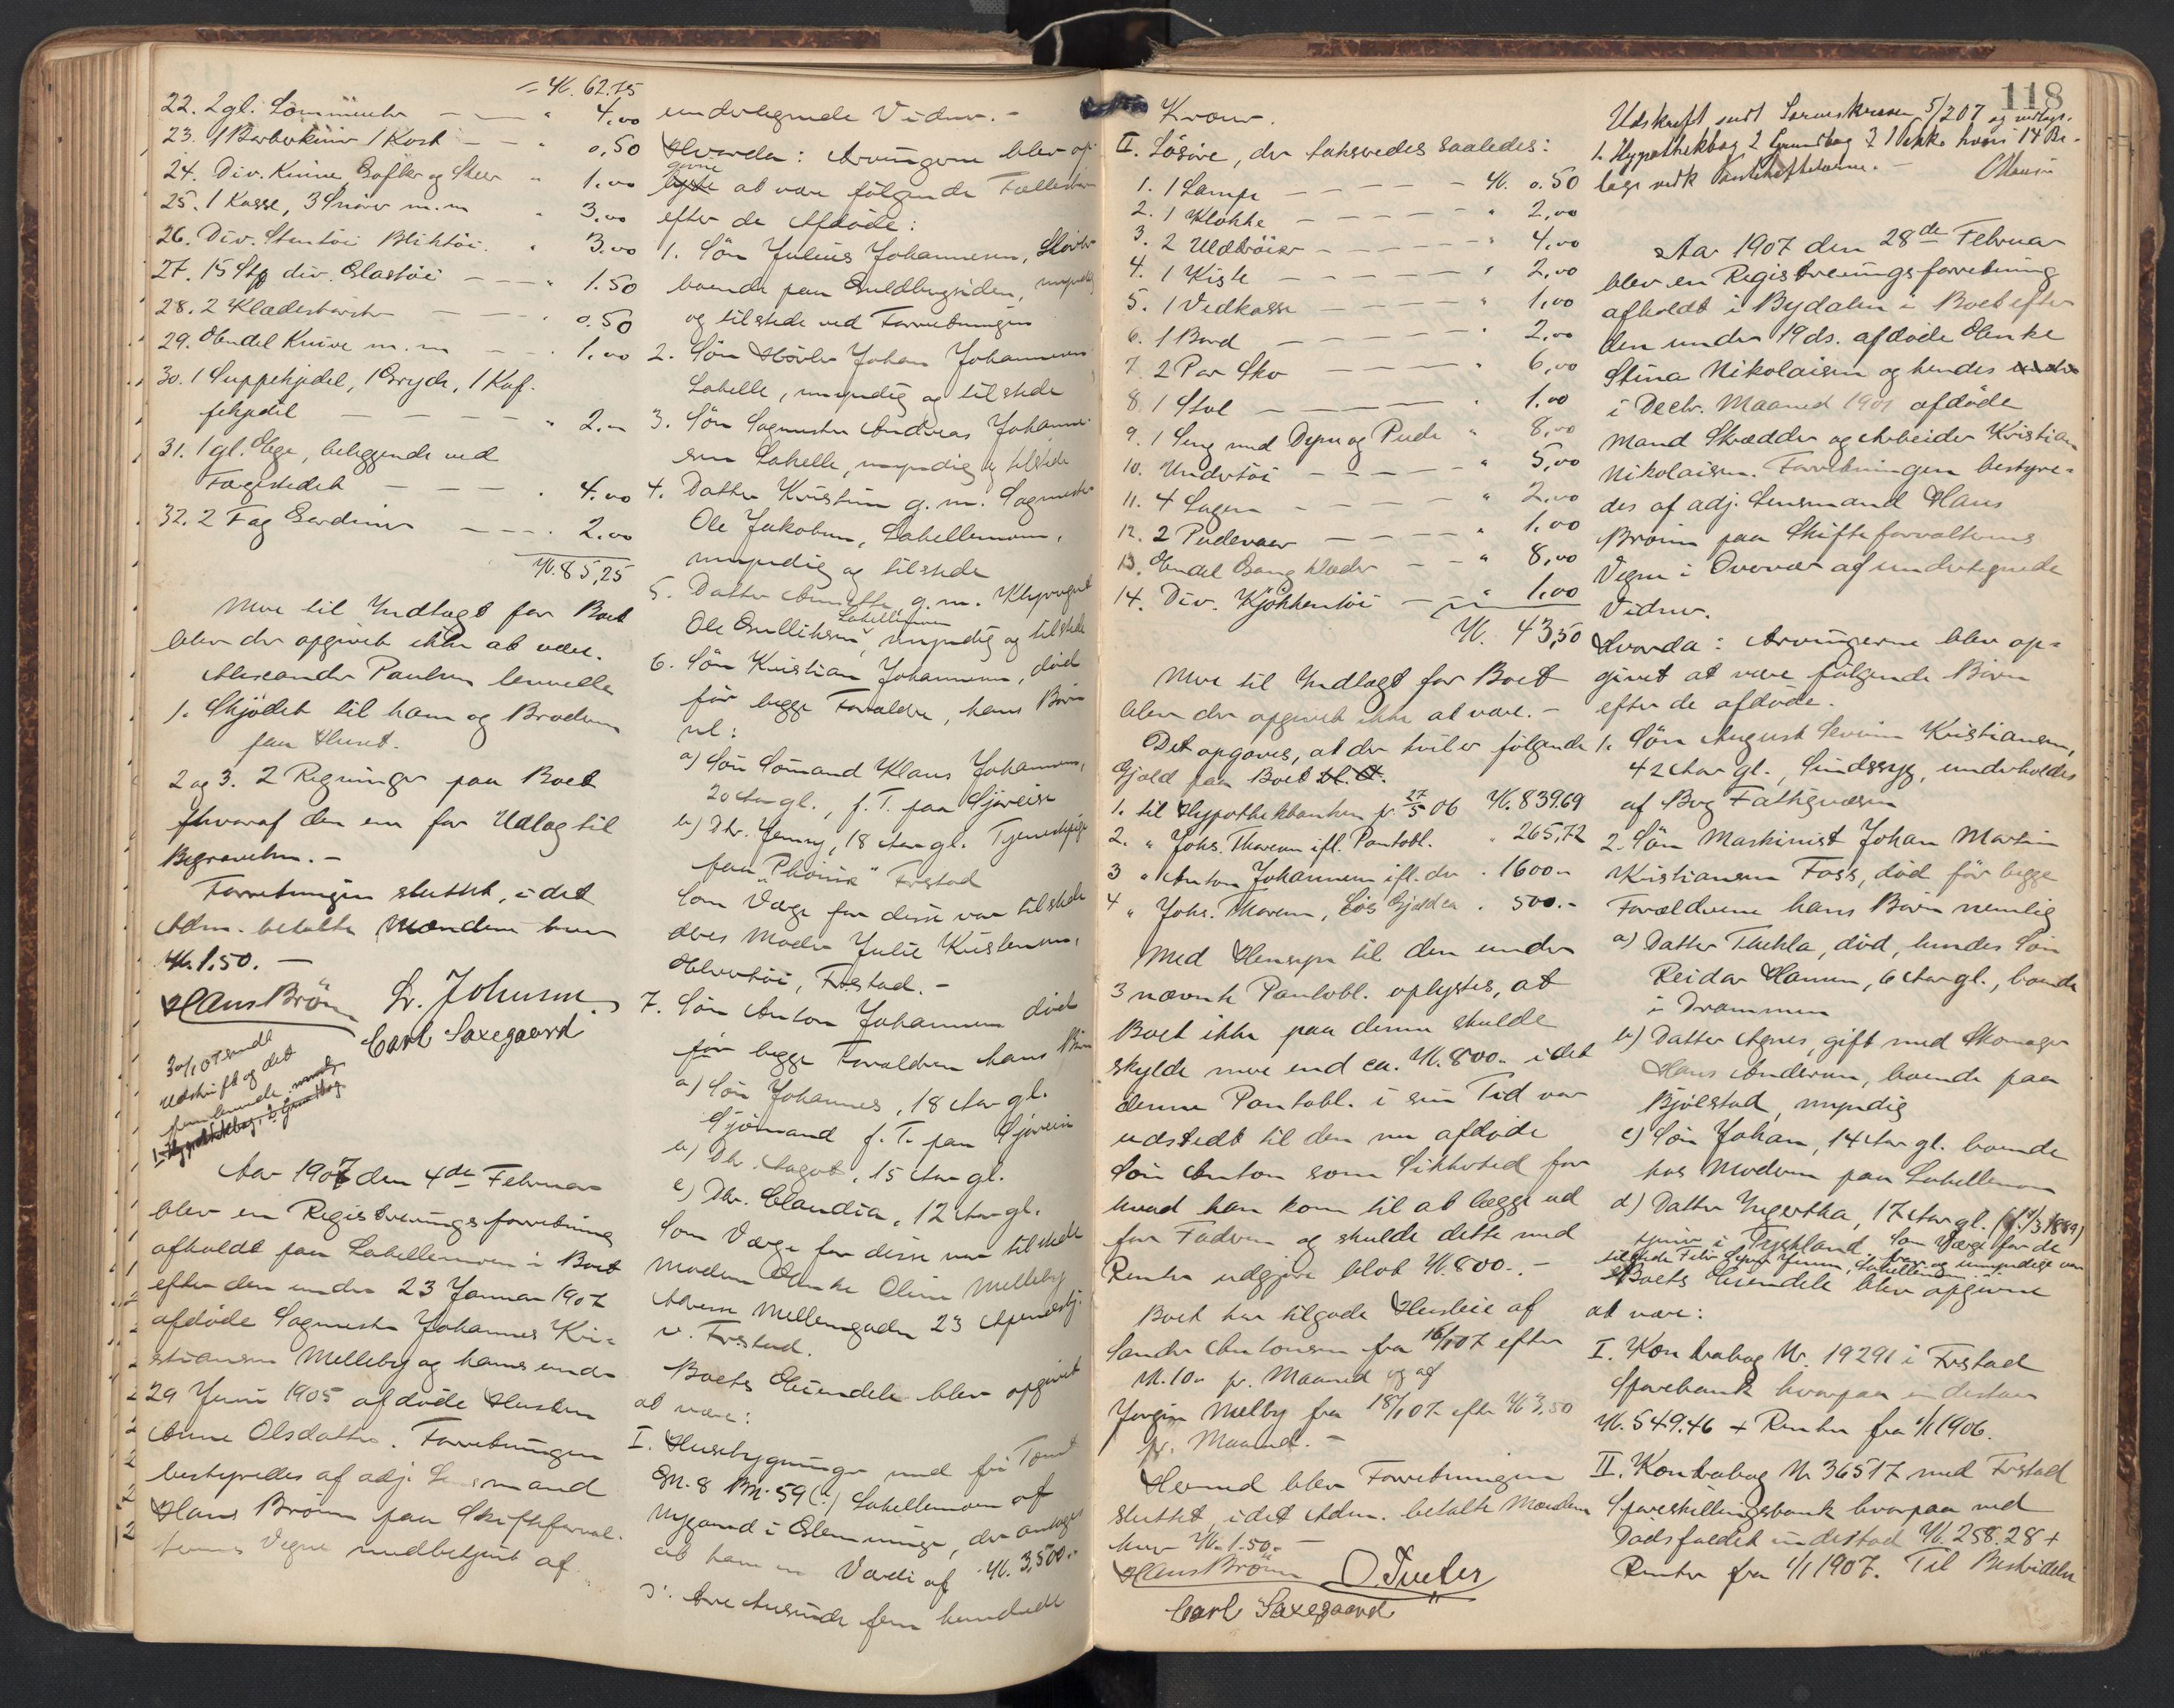 = Kr. 62.75
22. 2 gl. Lommeuhr — — " 4,00
23. 1 Barberkniv 1 Kost — — " 0,50
24. Div. Knive Gafler og Skeer " 1.00
25. 1 Kasse, 3 Snører m.m " 3.00
26. Div. Stentöi Bliktöi. " 3.00
27. 15 Stk div. Glastöi — — " 1.50
28. 2 Klædesbørster — — 0.50
29. Endel Knive m.m — — 1.00
30. 1 Suppekjedel, 1 Gryde, 1 Kaf-
fekjedel — — — " 2.-
31. 1 gl. Ege, beliggende ved
Færgestedet — — — . 4.00
32. 2 Fag Gardiner — — . 2.00
Kr. 85,25
Mere til Indtægt for Boet
blev der opgivet ikke at være.
Alexander Paulsen leverede
1. Skjödet til ham og Broderen
paa Huset.
2 og 3. 2 Regninger paa Boet
hvoraf den ene for Udlæg til
Begravelsen. -
Forretningen sluttet, idet
Adm. betalte Mændene hver
Kr. 1.50. —
Hans Brön Lr. Johnsen.
Carl Saxegaard
30/1 07 sendt
Udskrift og det
fremlevende
1. Hypothekbog, 2 Grundbog
Aar 1907 den 4de Februar
blev en Registreringsforretning
afholdt paa Labellemoen i Boet
efter den under 23 Januar 1907
afdöde Sagmester Johannes Kri-
stiansen Melleby og hans under
29 Juni 1905 afdöde Hustru
Anne Olsdatter. Forretningen
bestyredes af adj. Lensmand
Hans Brönn paa Skifteforval-
terens Vegne medbetjent af
undertegnede Vidner. -
Hvorda: Arvingerne blev op-
givne
lyste at være følgende Fællesbørn
efter de Afdöde:
1. Sön Julius Johannesen,
boende paa Guldbergsiden, myndig
og tilstede ved Forretningen
2. Sön Hövler Johan Johannesen
Labelle, myndig og tilstede
3. Sön Sagmester Andreas Johanne-
sen Labelle, myndig og tilstede
4. Datter Kristine g. m. Sagmester
Ole Jakobsen, Labellemoen,
myndig og tilstede
5. Datter Annette g. m.
Labellemoen
Ole Gulliksen, myndig og tilstede
6. Sön Kristian Johannesen, död
för begge Forældre, hans Börn
nl:
a) Sön Sömand Klaus Johannesen,
20 Aar gl., f. T. paa Sjöreise
b) Dtr. Jenny, 18 Aar gl. Tjenestepige
paa "Phönix" Frstad
Som Værge for disse var tilstede
deres Moder Julie Kristensen,
Frstad. -
7. Sön Anton Johannesen död
för begge Forældrene hans Börn
a) Sön Johannes, 18 Aar gl.
Sjömand f. T. paa Sjöreise
b) Dtr. Aagot, 15 Aar gl.
c) Dtr. Claudia, 12 Aar gl.
Som Værge for disse var tilstede
Moderen Enke Oline Melleby
Adresse Mellemgaden 23
v. Frstad.
Boets Eiendele blev opgivet
at være:
I. Husebygninger med fri Tomt
Gn. 8 Bn. 59 (?) Labellemoen af
Nygaard i Glemminge, der antages
at have en Værdi af Kr. 3,500.-
3: tre tusinde fem hundrede
Kroner.
II. Lösöre, der taksredes saaledes:
1. 1 Lampe — — — Kr. 0.50
2. 1 Klokke — — — " 2,00
3. 2 Uldtröier — — — " 4,00
4. 1 Kiste — — — " 2,00
5. 1 Vedkasse — — — " 1,00
6. 1 Bord — — — " 2,00
7. 2 Par Sko — — — " 6,00
8. 1 Stol — — — " 1.00
9. 1 Seng med Dyne og Pude " 8,00
10. Undertöi — — — " 5,00
11. 4 Lagen — — — " 2.00
12. 2 Pudevaer — — — " 1,00
13. Endel Gangklæder — — " 8,00
14. Div. Kjökkentöi — — " 1,00
Kr. 43,50
Mere til Indtægt for Boet
blev der opgivet ikke at være. -
Det opgaves, at der hviler følgende
Gjæld paa Boet
1. til Hypothekbanken pr. 27/5 06 Kr. 839.69
2. " Johs. Thoresen ifl. Pantobl. " 265,72
3 " Anton Johannesen ifl. do . 1600.-
4 " Johs. Thoresen, Lös Gjæld ca . 500.-
Med Hensyn til den under
3 nævnte Pantobl. oplystes, at
Boet ikke paa denne skulde
skylde mere end ca. Kr. 800.- idet
denne Pantobl. i sin Tid var
udstedt til den nu afdöde
Sön Anton som Sikkerhed for
hvad han kom til at lægge ud
for Faderen og skulde dette med
Renter udgjöre blot Kr. 800.. -
Boet har tilgode Husleie af
Sander Antonsen fra 16/1 07 efter
Kr. 10.- pr. Maaned og af
Jörgen Melby fra 18/1 07 efter Kr 3,50
pr. Maaned. -
Hermed blev Forretningen
sluttet, idet Adm. betalte Mændene
hver Kr. 1.50.- —
Hans Brönn
Carl Saxegaard
118
Udskrift sendt Sorenskriveren 5/2 07 og vedlagt
1. Hypothekbog 2 Grundbog
Aar 1907 den 28de Februar
blev en Registreringsforretning
afholdt i Bydalen i Boet efter
den under 19 ds. afdöde Enke
Stina Nikolaisen og hendes under
i Decbr. Maaned 1901 afdöde
Mand Skrædder og Arbeider Kristian
Nikolaisen. Forretningen bestyre-
des af adj. Lensmand Hans
Brönn paa Skifteforvalterens
Vegne i Overvær af undertegnede
Vidner.
Hvorda: Arvingerne blev op-
givet at være følgende Börn
efter de afdöde.
1. Sön August Severin Kristiansen,
42 Aar gl., Sindssyg, underholdes
af Byg Fattigvæsen
2. Sön Maskinist Johan Martin
Kristiansen Foss, död för begge
Forældrene hans Börn nemlig
a) Datter Thekla, död, hendes Sön
Reidar Hansen, 6 Aar gl., boende
i Drammen
b) Datter Agnes, gift med Skomager
Hans Andersen, boende paa
Bjölstad, myndig
c) Sön Johan, 14 Aar gl. boende
hos Moderen paa Labellemoen
d) Datter Ingertha, 17 Aar gl. (f. 11/3 1889)
i Tyskland. Som Værge for de
umyndige var
tilstede
Boets Eiendele blev opgivne
at være:
I. Kontrabog Nr. 19291 i Frstad
Sparebank hvorpaa indestaar
Kr. 549.46 + Renter fra 1/1 1906.
II. Kontrabog Nr 36517 med Frstad
Spareskillingsbank hvorpaa ved
Dødsfaldet indestod Kr. 258.28 +
Renter fra 1/1 1907. Til Bestridelse